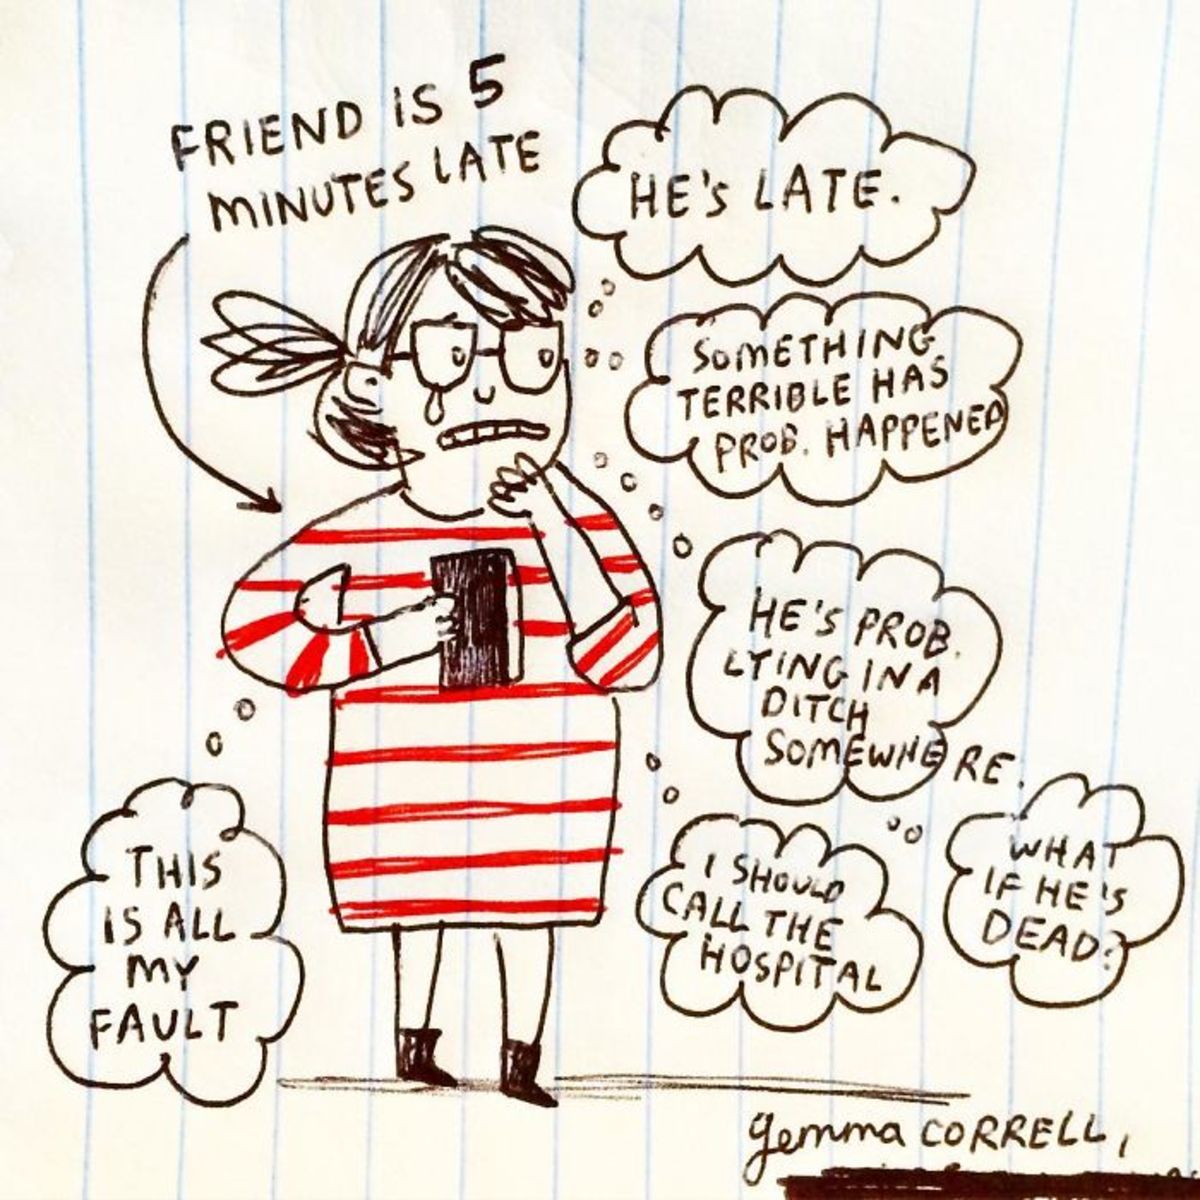 FRIEND IS 5
MINUTES LATE
HE'S LATE.
SOMETHING
TERRIBLE HAS
PROB. HAPPENED
HE'S PROB.
LYING IN A
DITCH
SOMEWHERE.
WHAT
IF HE'S
DEAD?
I SHOULD
CALL THE
HOSPITAL
THIS
IS ALL
MY
FAULT
gemma CORRELL,